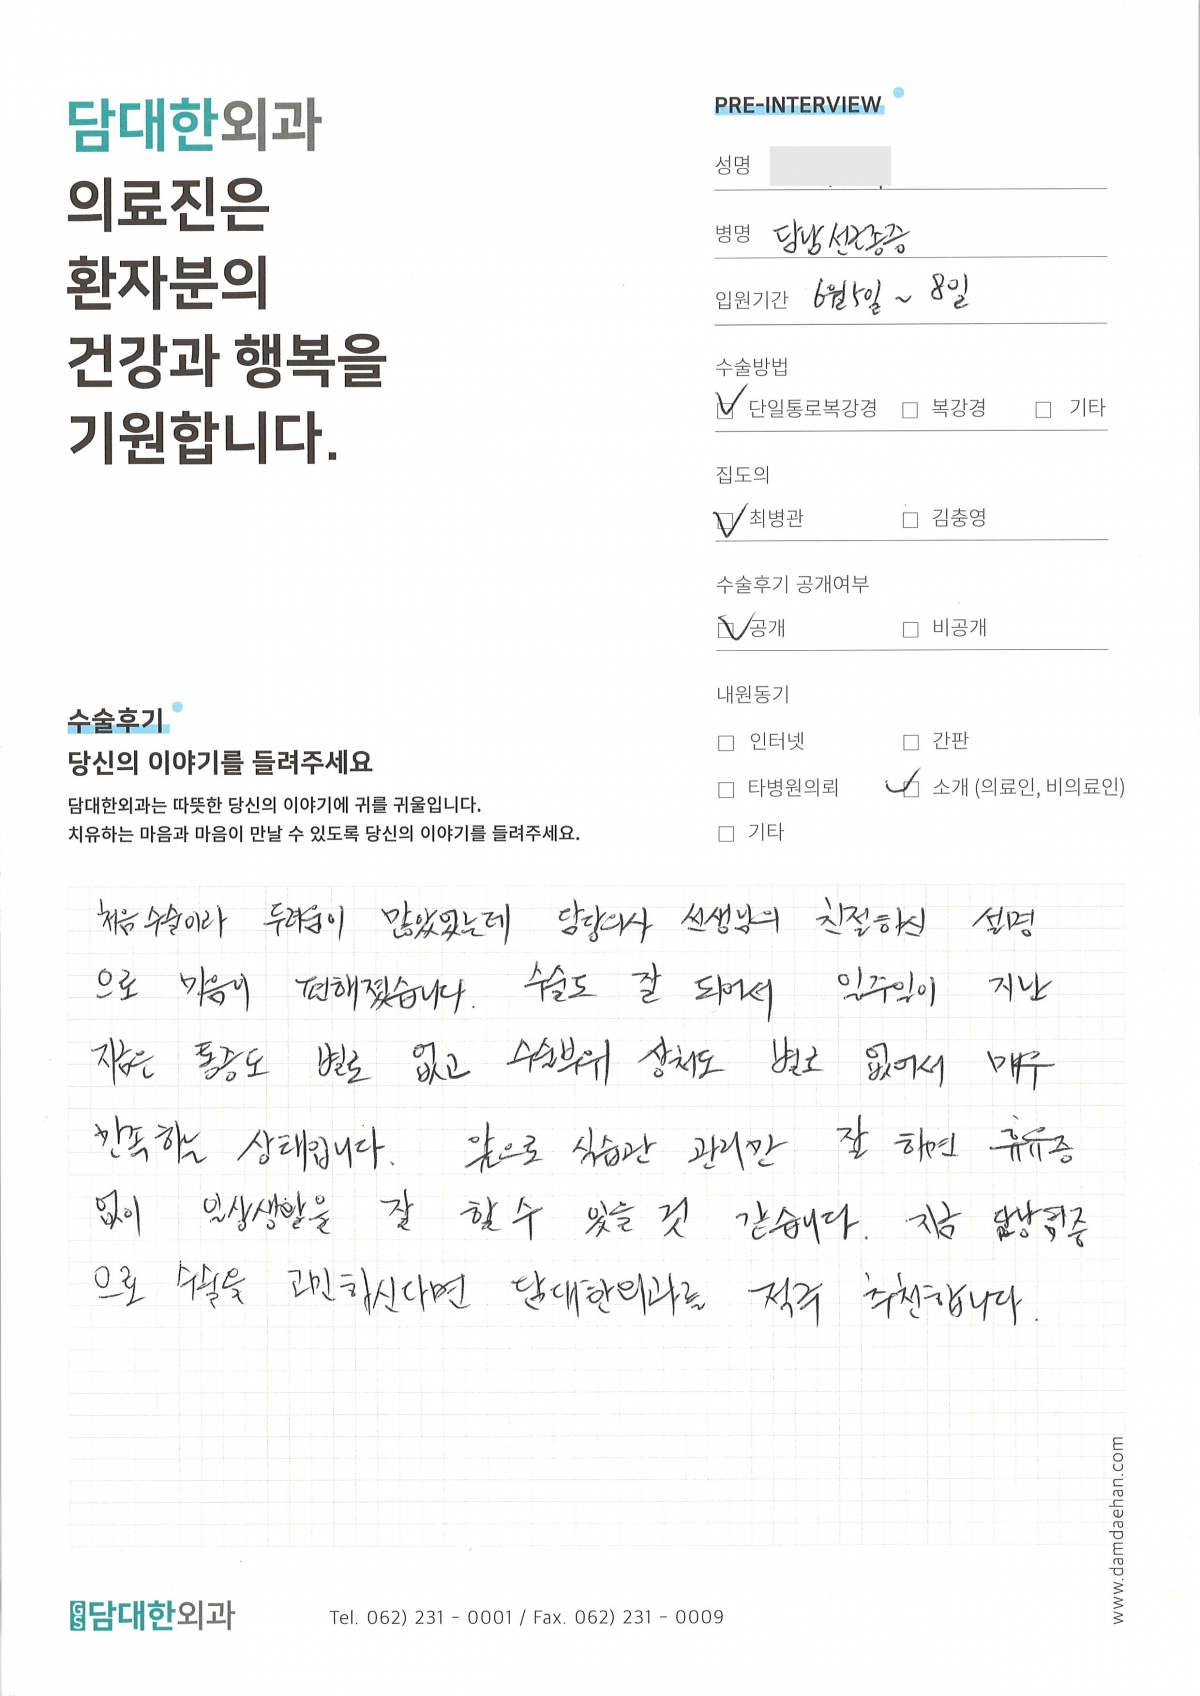 담대한외과
의료진은
환자분의
건강과 행복을
기원합니다.
PRE-INTERVIEW
성명
병명 담낭선근종증
입원기간 6월 5일 ~ 8일
수술방법
단일통로복강경 복강경 기타
집도의
최병관 김충영
수술후기 공개여부
공개 비공개
내원동기
인터넷 간판
타병원의뢰 소개 (의료인, 비의료인)
기타
수술후기
당신의 이야기를 들려주세요
담대한외과는 따뜻한 당신의 이야기에 귀를 귀울입니다.
치유하는 마음과 마음이 만날 수 있도록 당신의 이야기를 들려주세요.
처음 수술이라 두려움이 많았었는데 담당의사 선생님의 친절하신 설명
으로 마음이 편해졌습니다. 수술도 잘 되어서 일주일이 지난
지금은 통증도 별로 없고 수술부위 상처도 별로 없어서 매우
만족하는 상태입니다. 앞으로 식습관 관리만 잘 하면 후유증
없이 일상생활을 잘 할 수 있을 것 같습니다. 지금 담낭
으로 수술을 고민하신다면 담대한외과를 적극 추천합니다.
www.damdaehan.com
GS담대한외과
Tel. 062) 231 - 0001 / Fax. 062) 231 - 0009